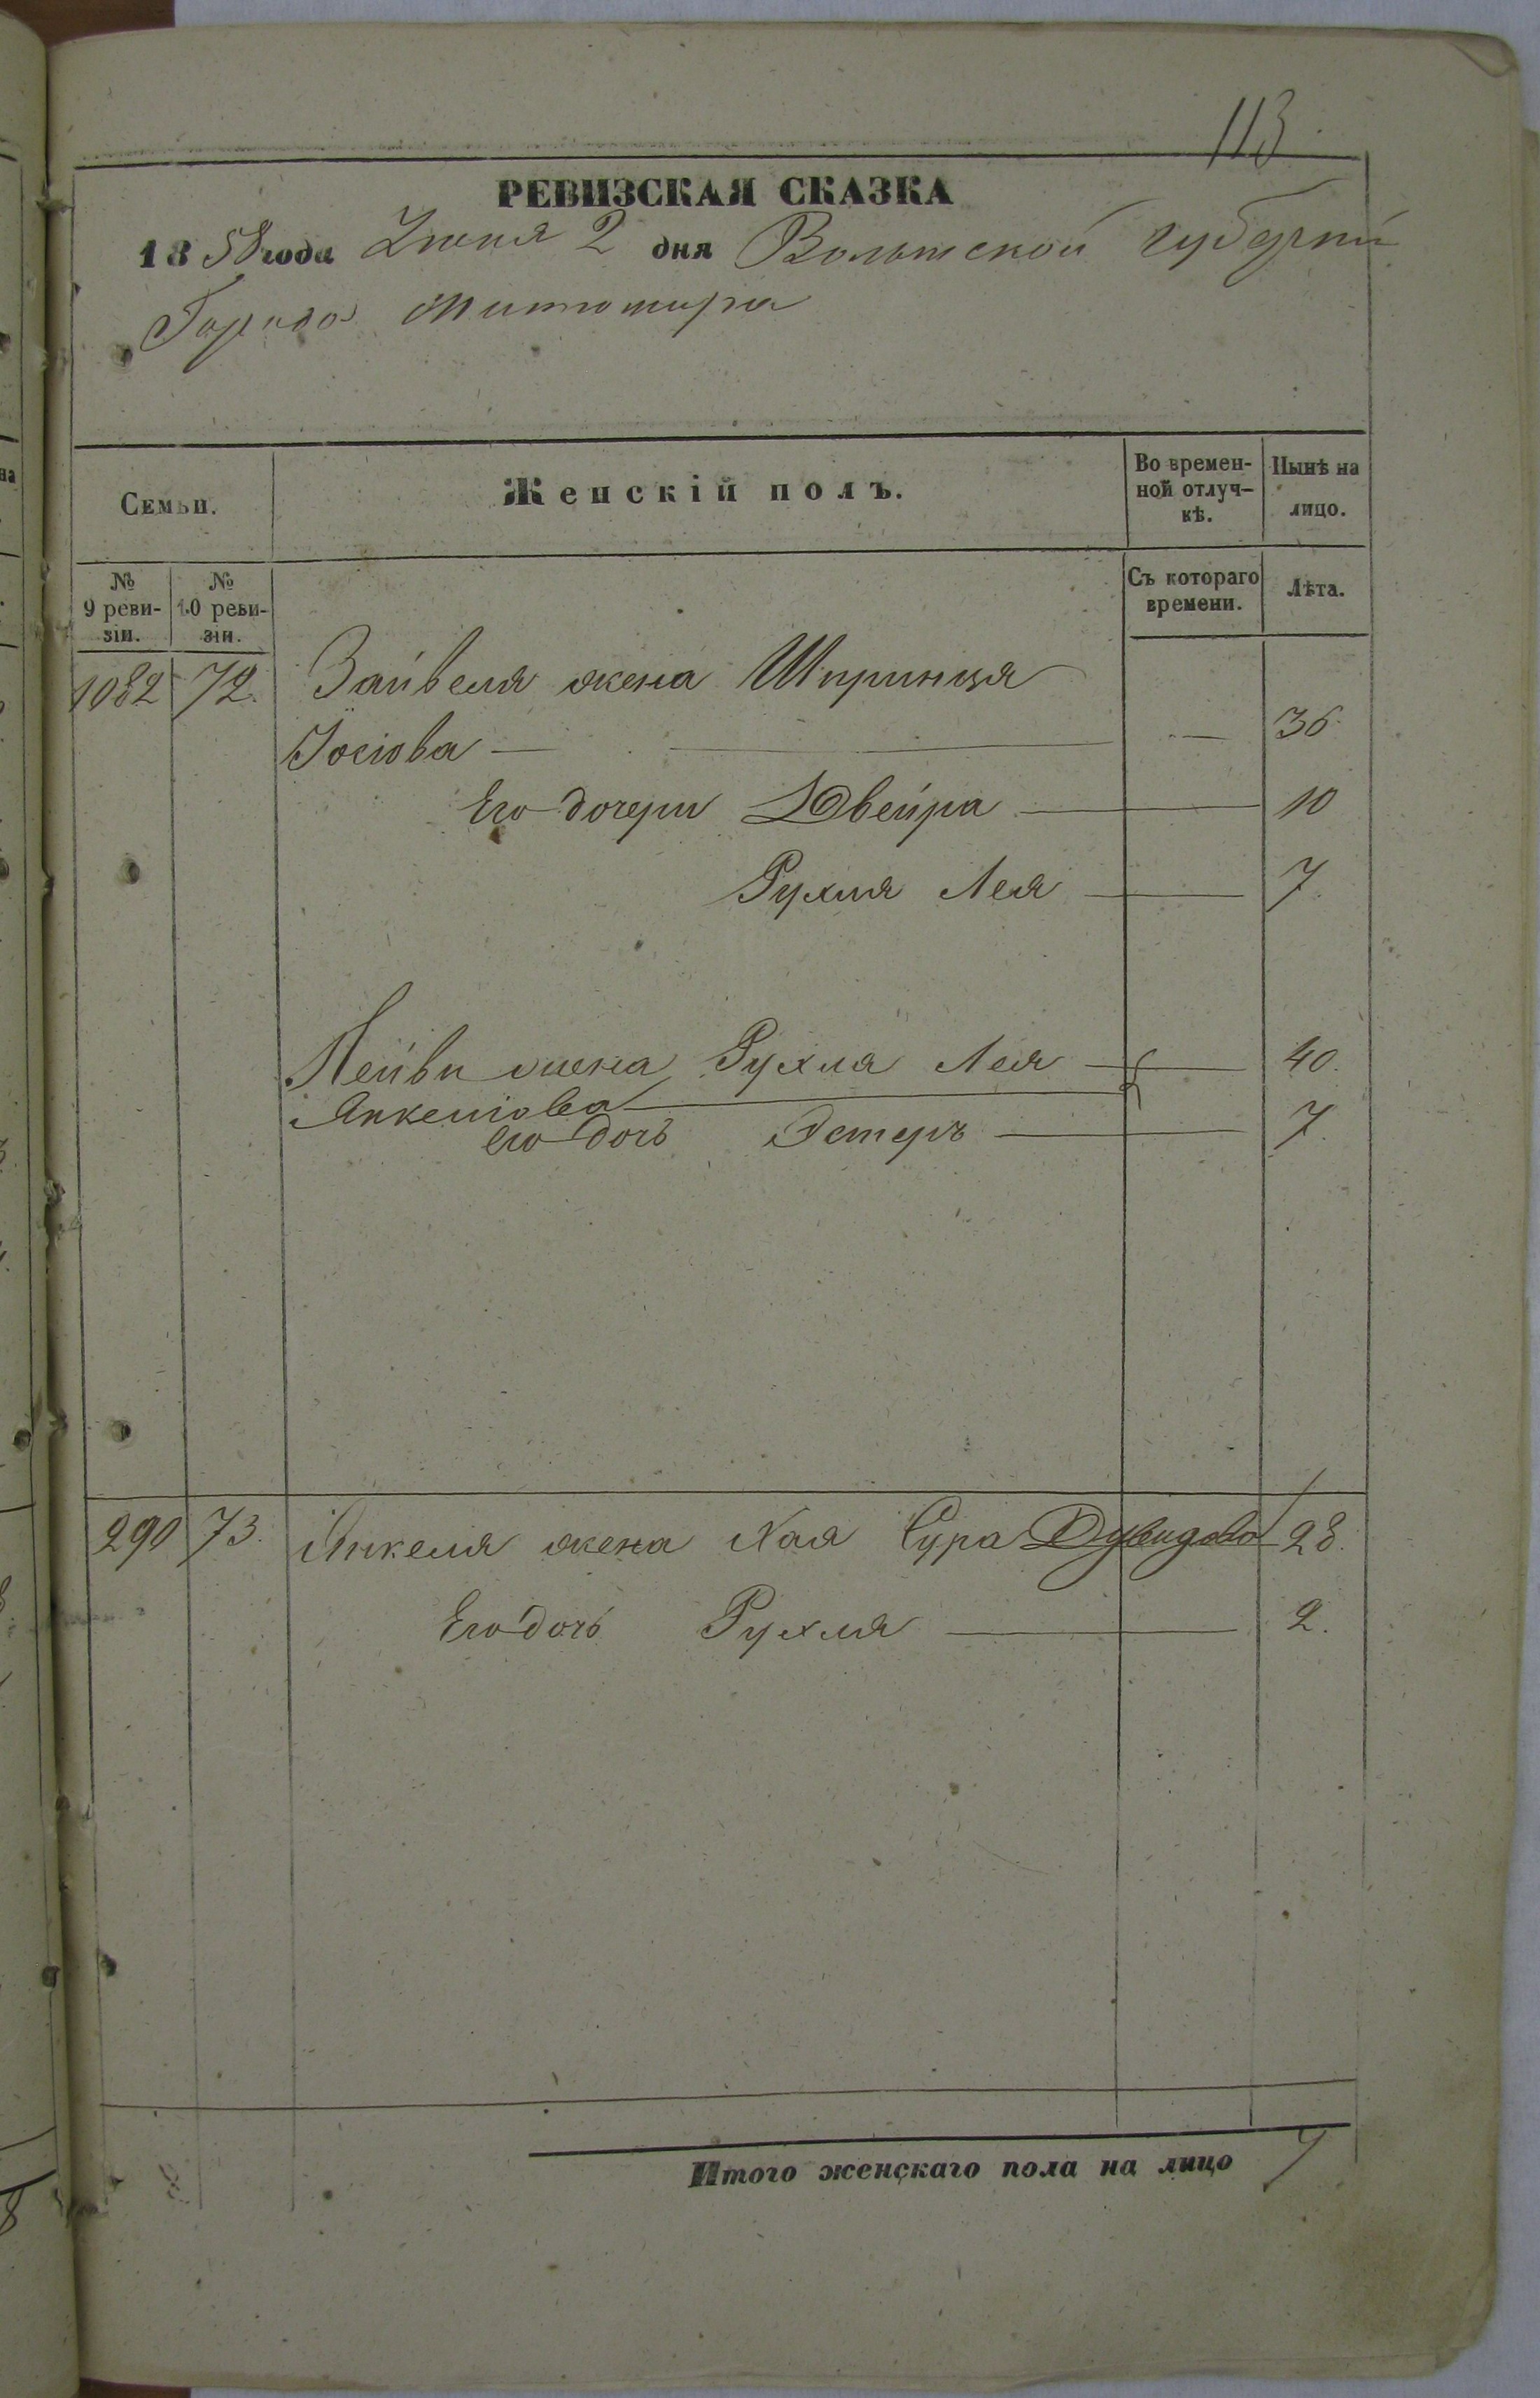 113.
РЕВИЗСКАЯ СКАЗКА
1858 года Іюня 2 дня Волынской губерніи
Города Житомира
Семьи.
Женскій полъ.
Во времен-
ной отлуч-
кѣ.
Нынѣ на
лицо.
№
9 реви-
зіи.
№
10 реви-
зіи.
Съ котораго
времени.
Лѣта.
1082 72. Зайвеля жена Шпринця
Іосіова — — 36.
Его дочери Двейра — 10
Рухля Лея — 7.
Лейви жена Рухля Лея — 40.
Янкеліова —
его дочь Эстеръ — 7.
290 73. Янкеля жена Хая Сура Дувидова 28.
Его дочь Рухля — 2.
Итого женскаго пола на лицо 7